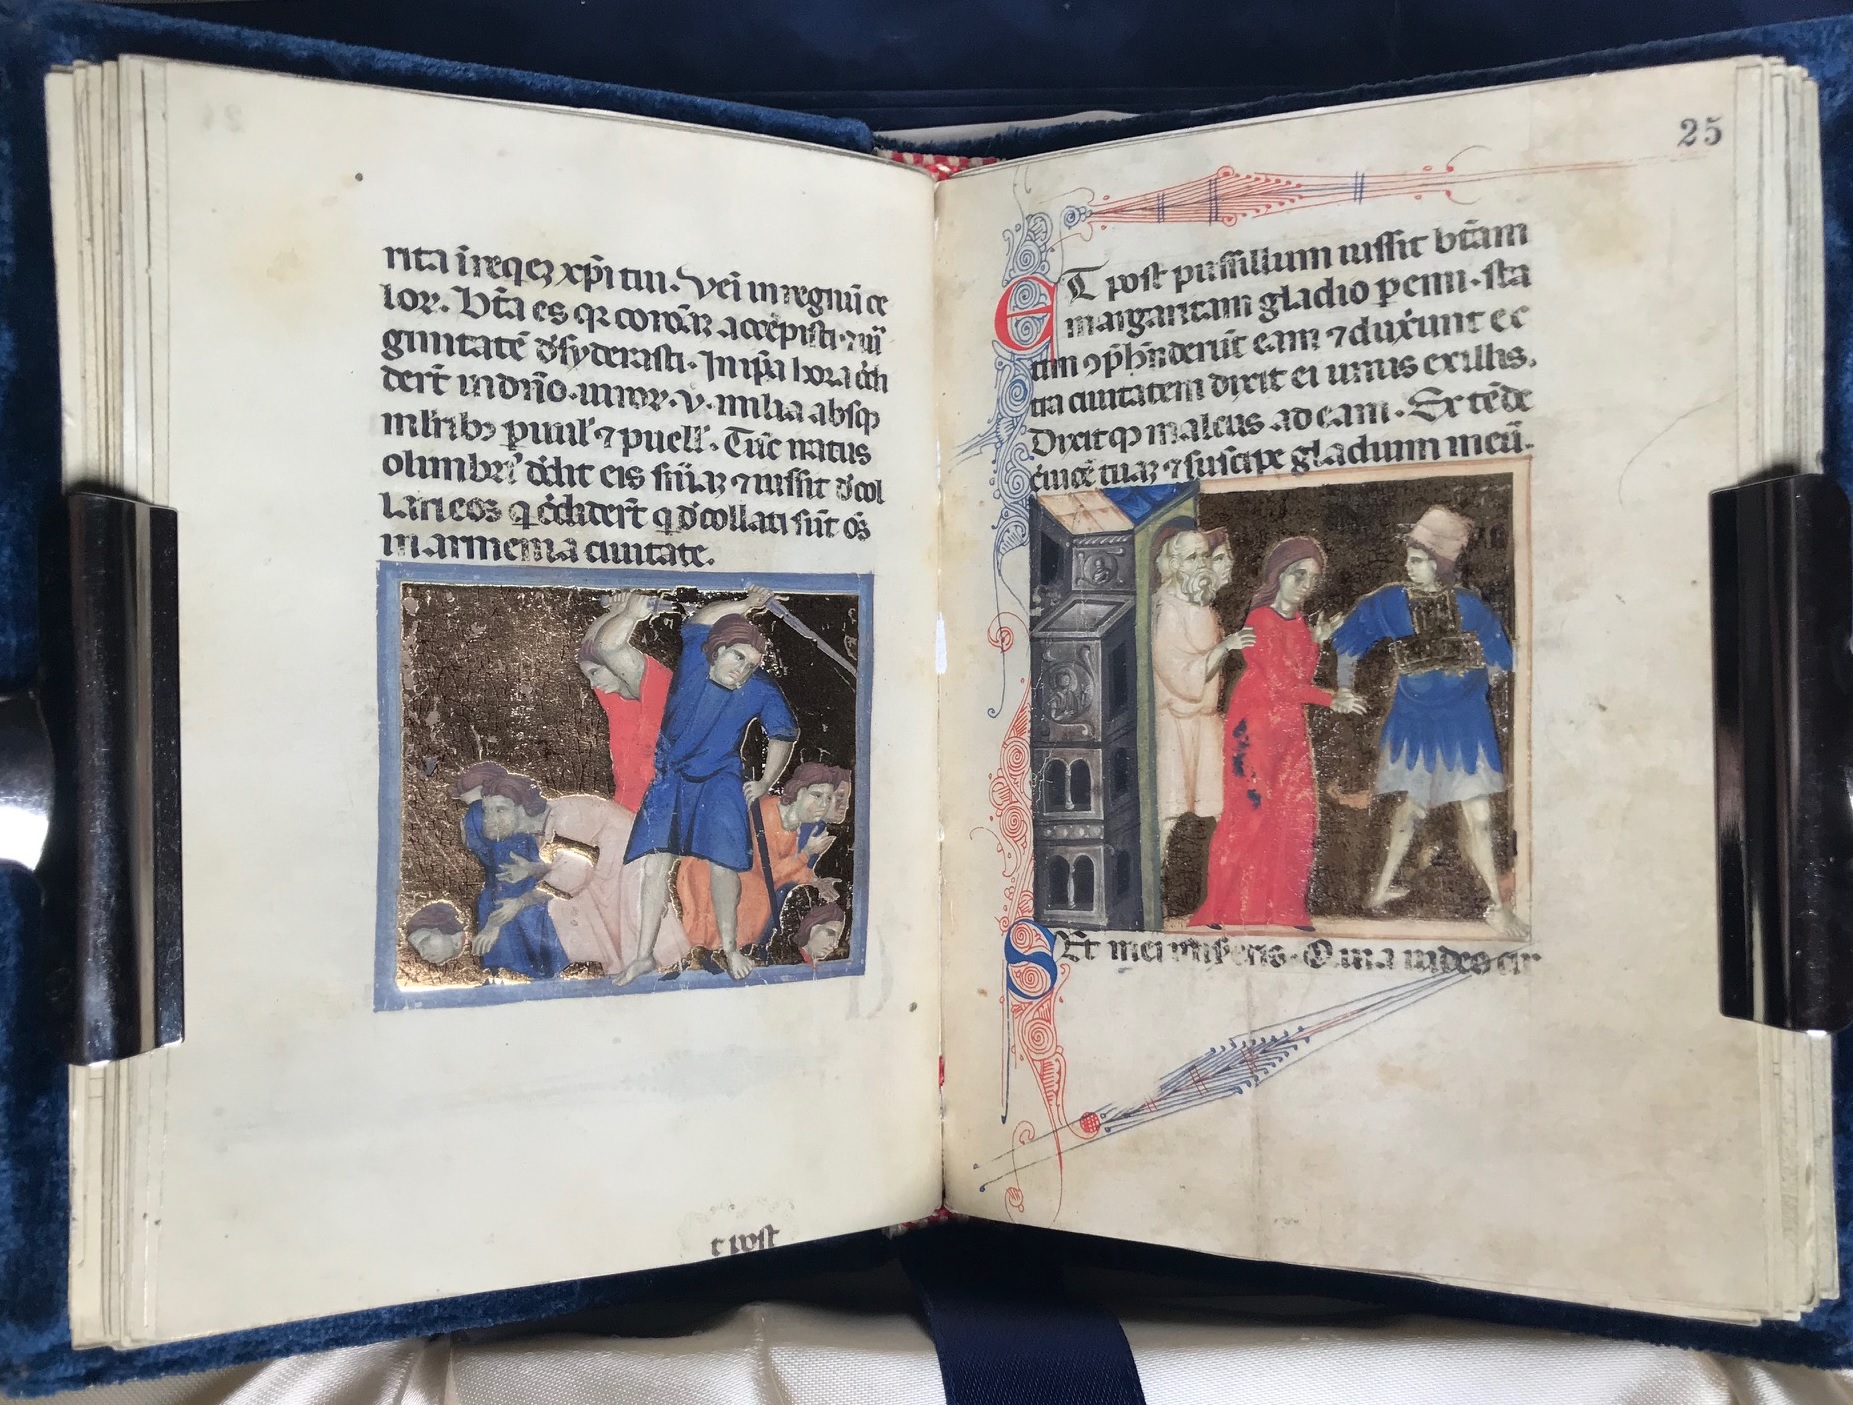 rita ĩ reqẽ xp̃i tui. Vei in regnũ ce
lor. Bt̃a es qr coronã accepisti. ⁊ uir
ginitatẽ d̃syderasti. In ip̃a hora c̃di
dert̃ in dño. uiror. v. milia absq̃
militib᾿ puul᾿ ⁊ puell᾿. Tũc iratus
olimbri᾿ d̃dit eis sñiaʒ ⁊ iussit d̃col
lari eos q̃ c̃diderr̃t q̃ d̃collati sũt oẽs
in armenia ciuitate.
t post
25
ET post pussillum iussit bt̃am
margaritam gladio periri. sta
tim ꝯp̃hñderũt eam ⁊ duxerunt ex
tra ciuitatem dixit ei unus ex illis.
Dixitq̃ malcus ad eam. Extẽde
ceruicẽ tuaʒ ⁊ suscipe gladium meũ.
SEt mei miseris. Quia uideo cir